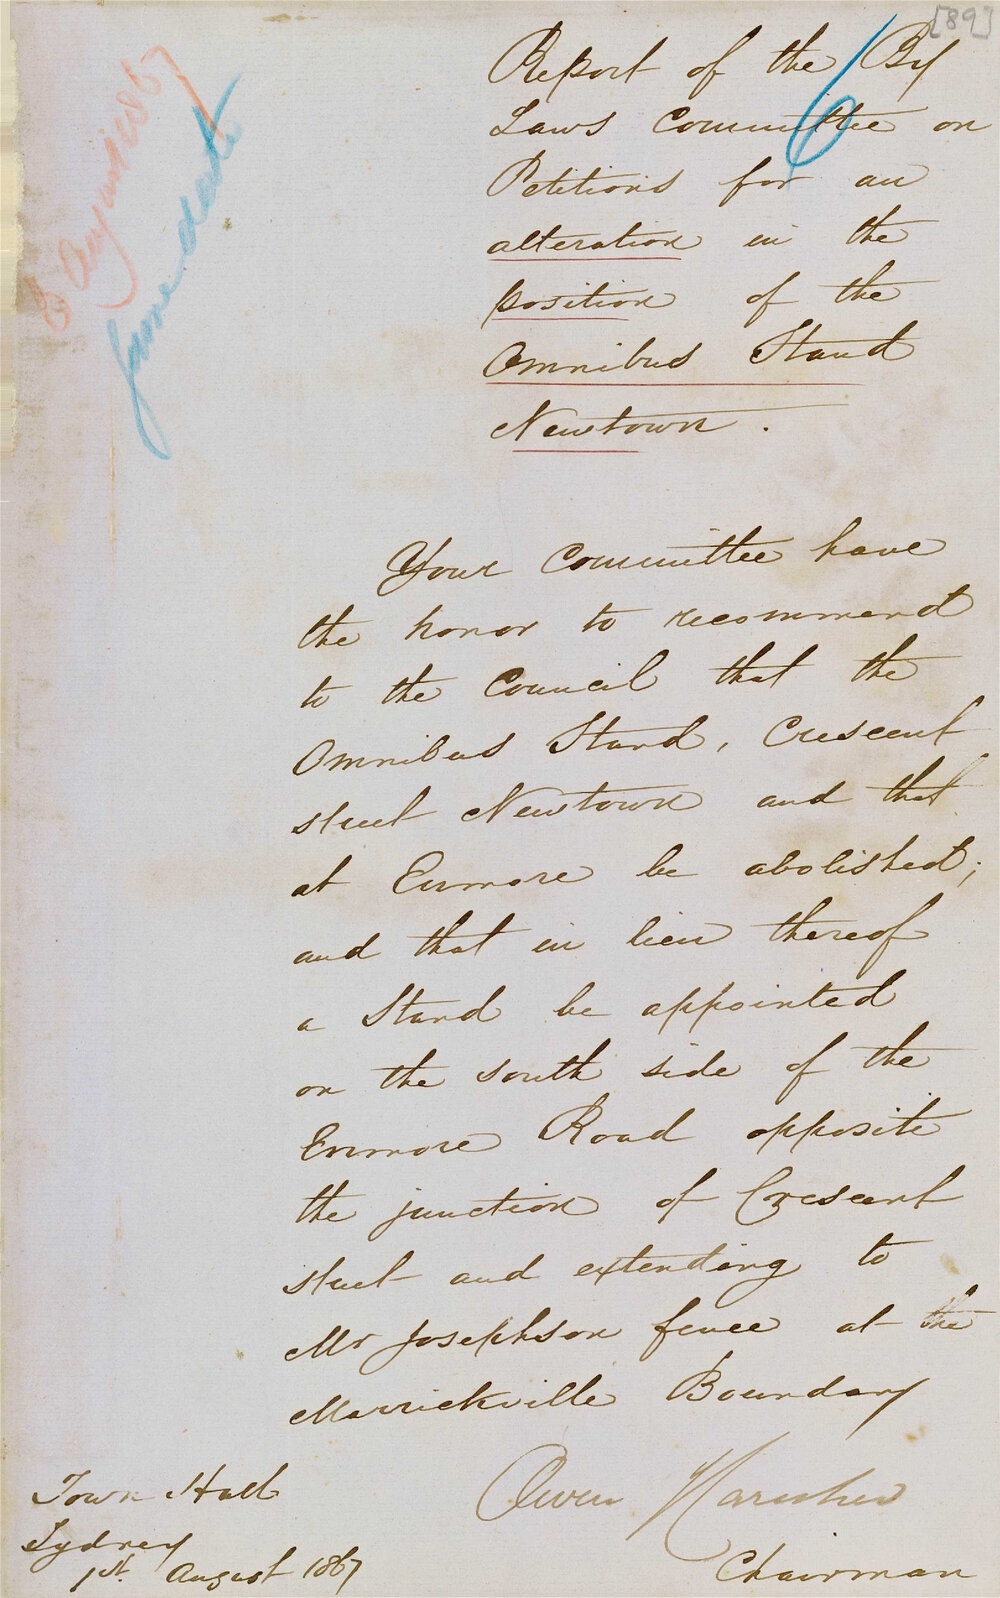 [89]
6 August 67
same date
6
Report of the By
Laws Committee on
Petitions for an
alteration in the
position of the
Omnibus Stand
Newtown.
Your Committee have
the honor to recommend
to the Council that the
Omnibus Stand, Crescent
street Newtown and that
at Enmore be abolished;
and that in lieu thereof
a Stand be appointed
on the south side of the
Enmore Road opposite
the junction of Crescent
street and extending to
Mr Josephson fence at the
Marrickville Boundary
Owen
Chairman
Town Hall
Sydney
1st. August 1867